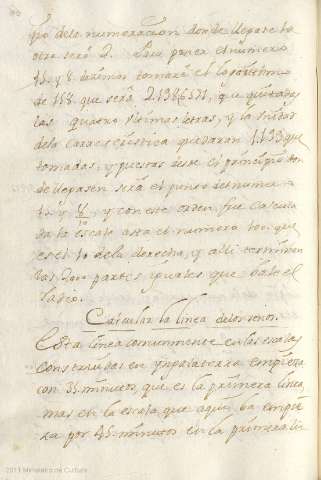 pio de la numeracion donde llegare la
otra será 2. Para poner el numero
15. y 8 dezimos tomaré el logaritmo
de 158. que será 2.1986571, y quitadas
las quatro ultimas letras, y la unidad
dela Caracteristica quedaran 1.198 que
tomadas, y puestas desde el principio don
de llegasen será el punto del numero
15. y 8/10 y con este orden fue calcula
da la escala asta el numero 100. que
es el 10 dela derecha, y alli terminan
las dos partes yguales que dále el
radio.
Calcular la linea delos senos.
Esta linea comunmente en las escalas
construidas en Ynpalaterra empieza
con 35 minutos, que es la primera linea
mas en la escala que aqui ba empie
za por 45 minutos en la primera li
2011 Ministerio de Cultura